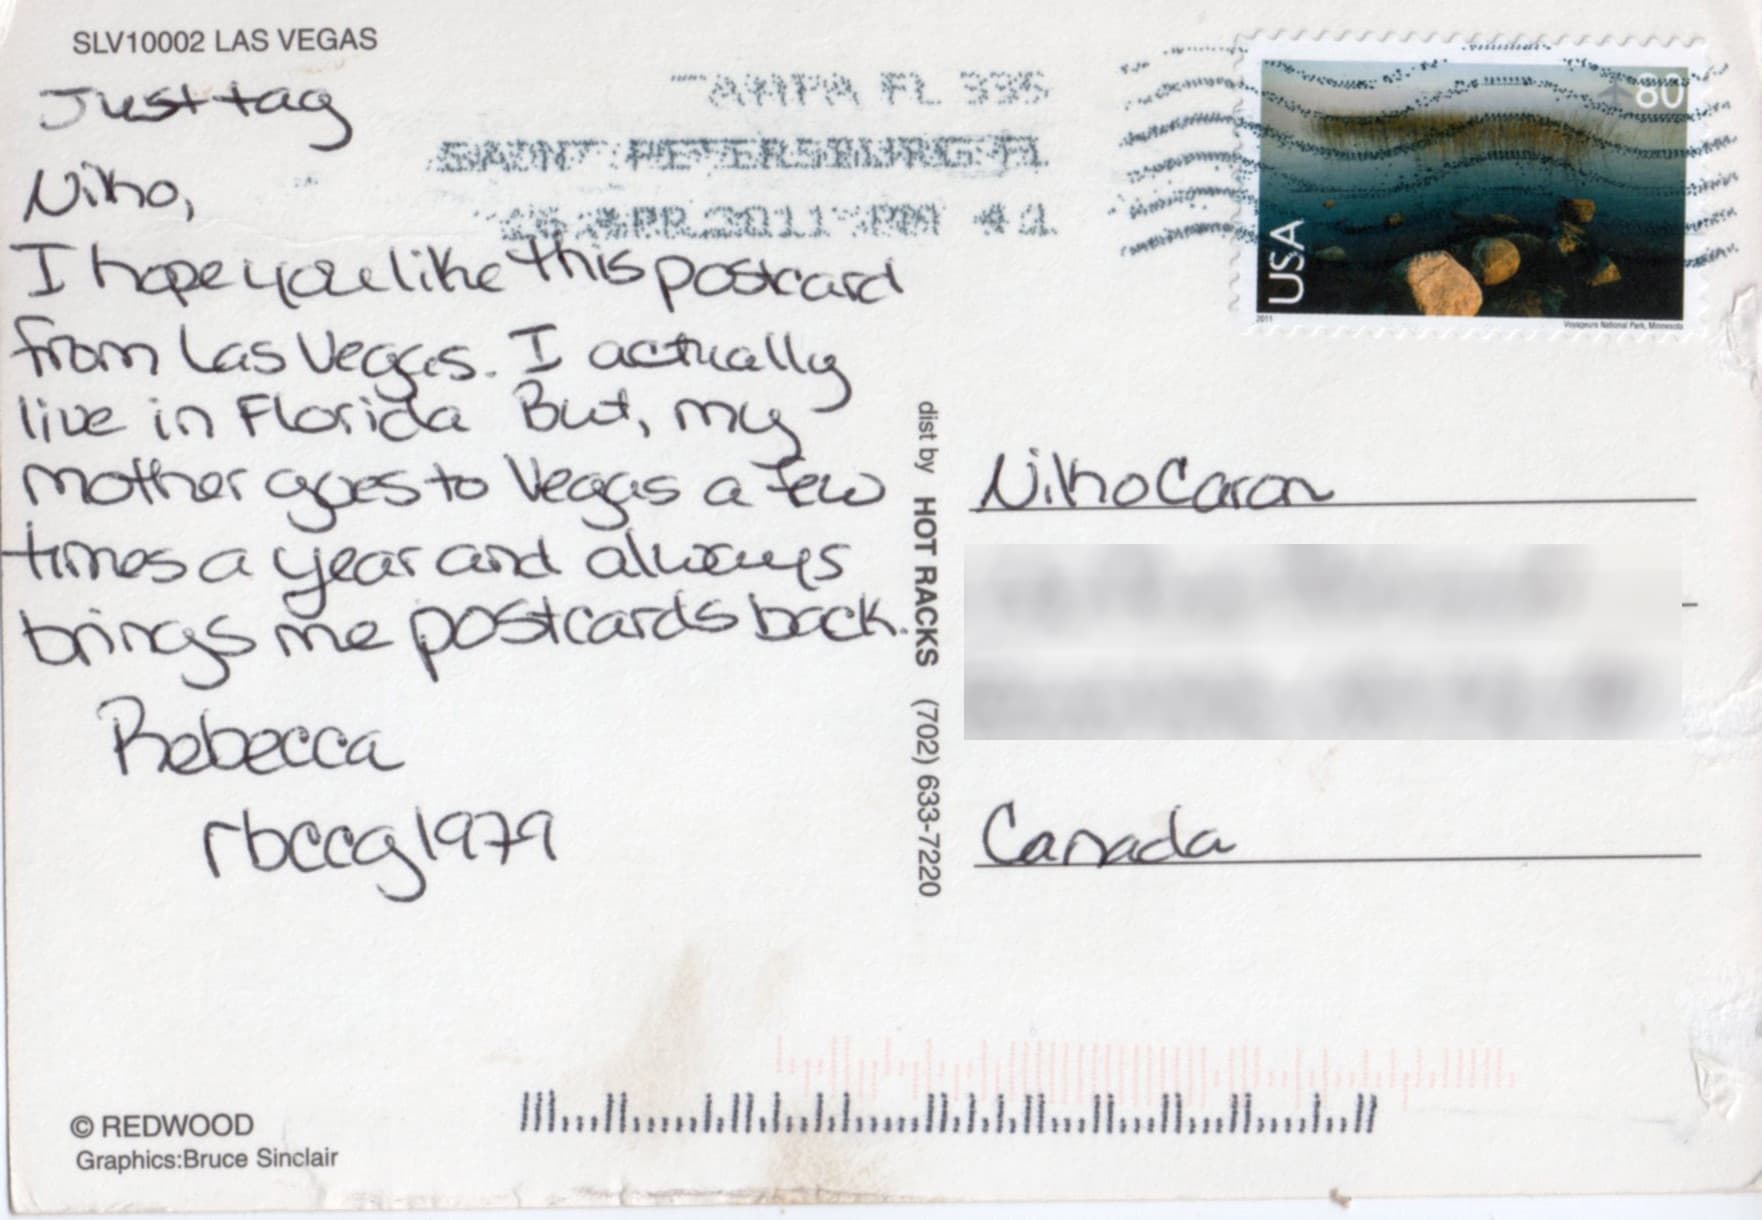 SLV10002 LAS VEGAS
Just tag
Niko,
I hope you like this postcard
from Las Vegas. I actually
live in Florida But, my
mother goes to Vegas a few
times a year and always
brings me postcards back.
Rebecca
rbccg1979
© REDWOOD
Graphics:Bruce Sinclair
dist by HOT RACKS (702) 633-7220
TAMPA FL 335
SAINT PETERSBURG FL
APR 2011 PM
80
USA
2011
Voyageurs National Park, Minnesota
Niko Caron
Canada